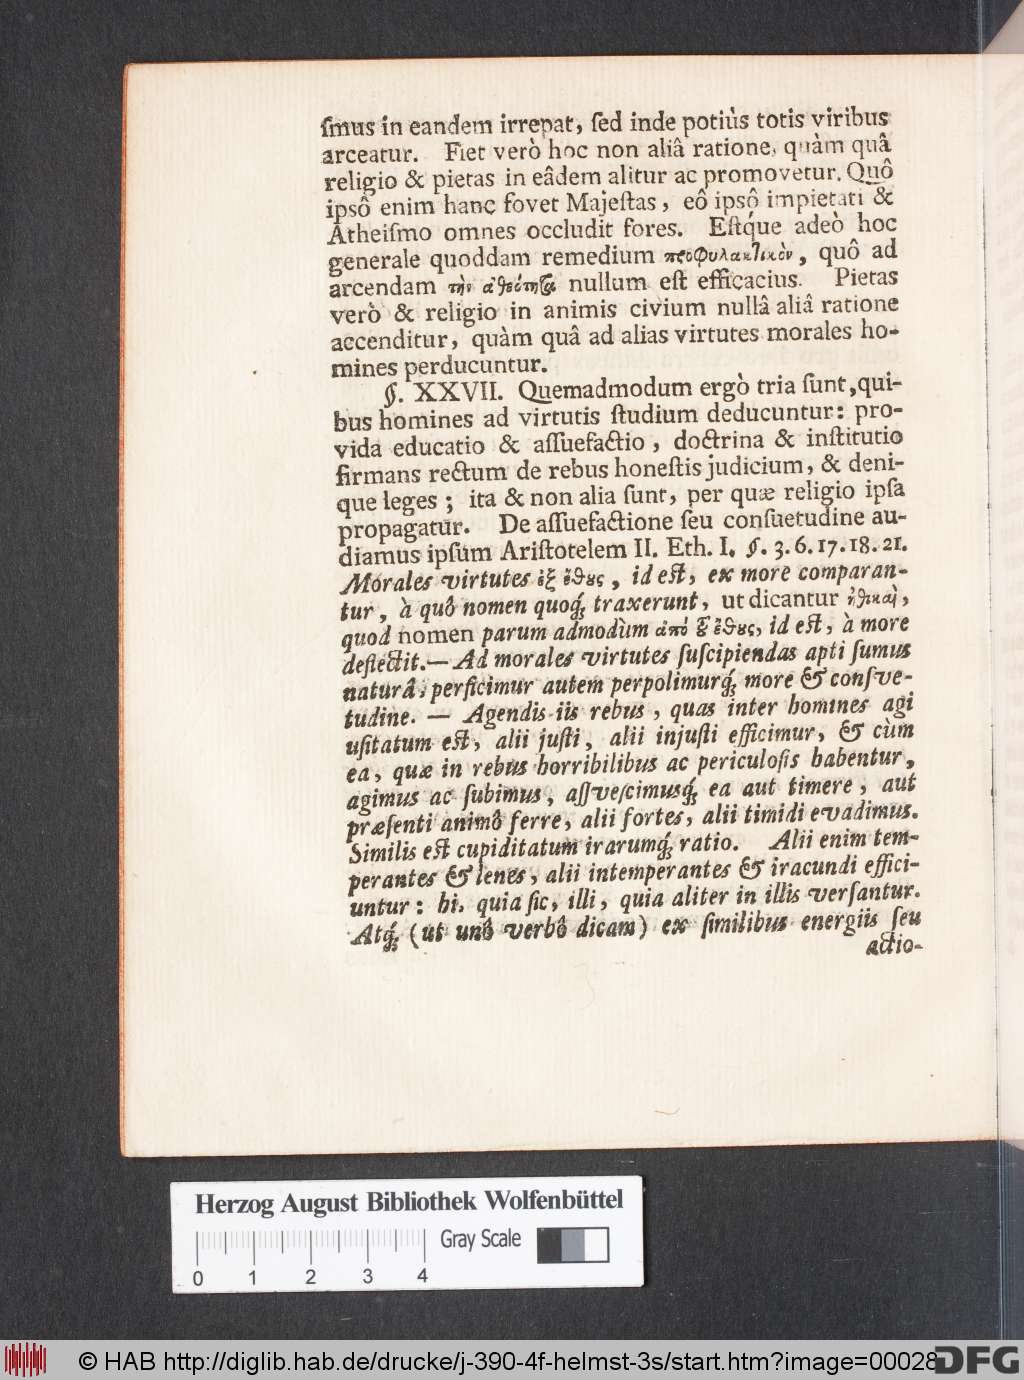 ſmus in eandem irrepat, ſed inde potiùs totis viribus
arceatur. Fiet verò hoc non aliâ ratione, quàm quâ
religio & pietas in eâdem alitur ac promovetur. Quô
ipsô enim hanc fovet Majeſtas, eô ipsô impietati &
Atheiſmo omnes occludit fores. Eſtque adeò hoc
generale quoddam remedium προφυλακτικὸν, quô ad
arcendam τὴν ἀθεότητα nullum eſt efficacius. Pietas
verò & religio in animis civium nullâ aliâ ratione
accenditur, quàm quâ ad alias virtutes morales ho-
mines perducuntur.
§. XXVII. Quemadmodum ergò tria ſunt, qui-
bus homines ad virtutis ſtudium deducuntur: pro-
vida educatio & aſſuefactio, doctrina & inſtitutio
firmans rectum de rebus honeſtis judicium, & deni-
que leges; ita & non alia ſunt, per quæ religio ipſa
propagatur. De aſſuefactione ſeu conſuetudine au-
diamus ipſum Ariſtotelem II. Eth. I. §. 3. 6. 17. 18. 21.
Morales virtutes ἐξ ἔθους, id eſt, ex more comparan-
tur, à quô nomen quoq́; traxerunt, ut dicantur ἠθικαὶ,
quod nomen parum admodùm ἀπὸ τοῦ ἔθους, id eſt, à more
deflectit.— Ad morales virtutes ſuſcipiendas apti ſumus
naturâ, perficimur autem perpolimurq́; more & conſve-
tudine. — Agendis iis rebus, quas inter homines agi
uſitatum eſt, alii juſti, alii injuſti efficimur, & cùm
ea, quæ in rebus horribilibus ac periculoſis habentur,
agimus ac ſubimus, aſſveſcimusq́; ea aut timere, aut
præſenti animô ferre, alii fortes, alii timidi evadimus.
Similis eſt cupiditatum irarumq́; ratio. Alii enim tem-
perantes & lenes, alii intemperantes & iracundi effici-
untur: hi, quia ſic, illi, quia aliter in illis verſantur.
Atq́; (ut unô verbô dicam) ex ſimilibus energiis ſeu
actio-
Herzog August Bibliothek Wolfenbüttel
Gray Scale
0 1 2 3 4
© HAB http://diglib.hab.de/drucke/j-390-4f-helmst-3s/start.htm?image=00028
DFG